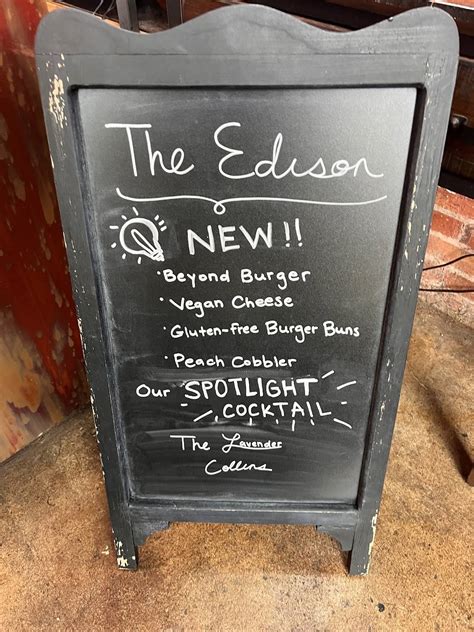 The Edison
NEW!!
· Beyond Burger
· Vegan Cheese
· Gluten-free Burger Buns
· Peach Cobbler
Our SPOTLIGHT
COCKTAIL
The Lavender
Collins